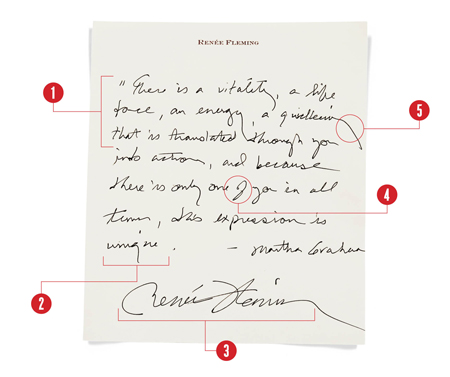 RENÉE FLEMING
1
" There is a vitality, a life
force, an energy, a quickening
5
that is translated through you
into action, and because
there is only one of you in all
4
time, this expression is
unique. — Martha Graham
2
Renée Fleming
3